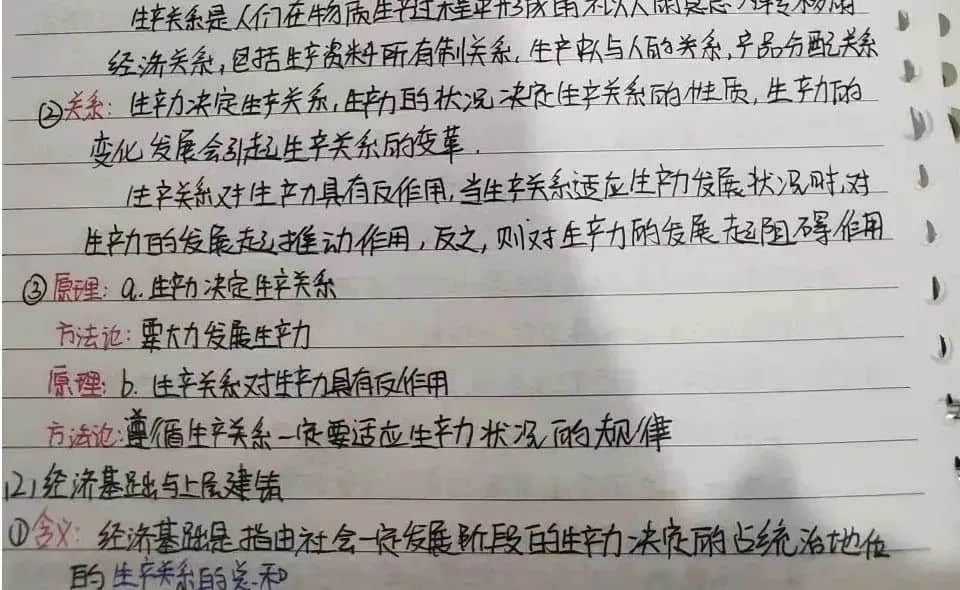 生产关系是人们在物质生产过程中形成的不以人的意志为转移的
经济关系,包括生产资料所有制关系,生产中人与人的关系,产品分配关系
②关系:生产力决定生产关系,生产力的状况决定生产关系的性质,生产力的
变化发展会引起生产关系的变革.
生产关系对生产力具有反作用,当生产关系适应生产力发展状况时,对
生产力的发展起推动作用,反之,则对生产力的发展起阻碍作用
③原理:a.生产力决定生产关系
方法论:要大力发展生产力
原理:b.生产关系对生产力具有反作用
方法论:遵循生产关系一定要适应生产力状况的规律
(2)经济基础与上层建筑
①含义:经济基础是指由社会一定发展阶段的生产力决定的占统治地位
的生产关系的总和